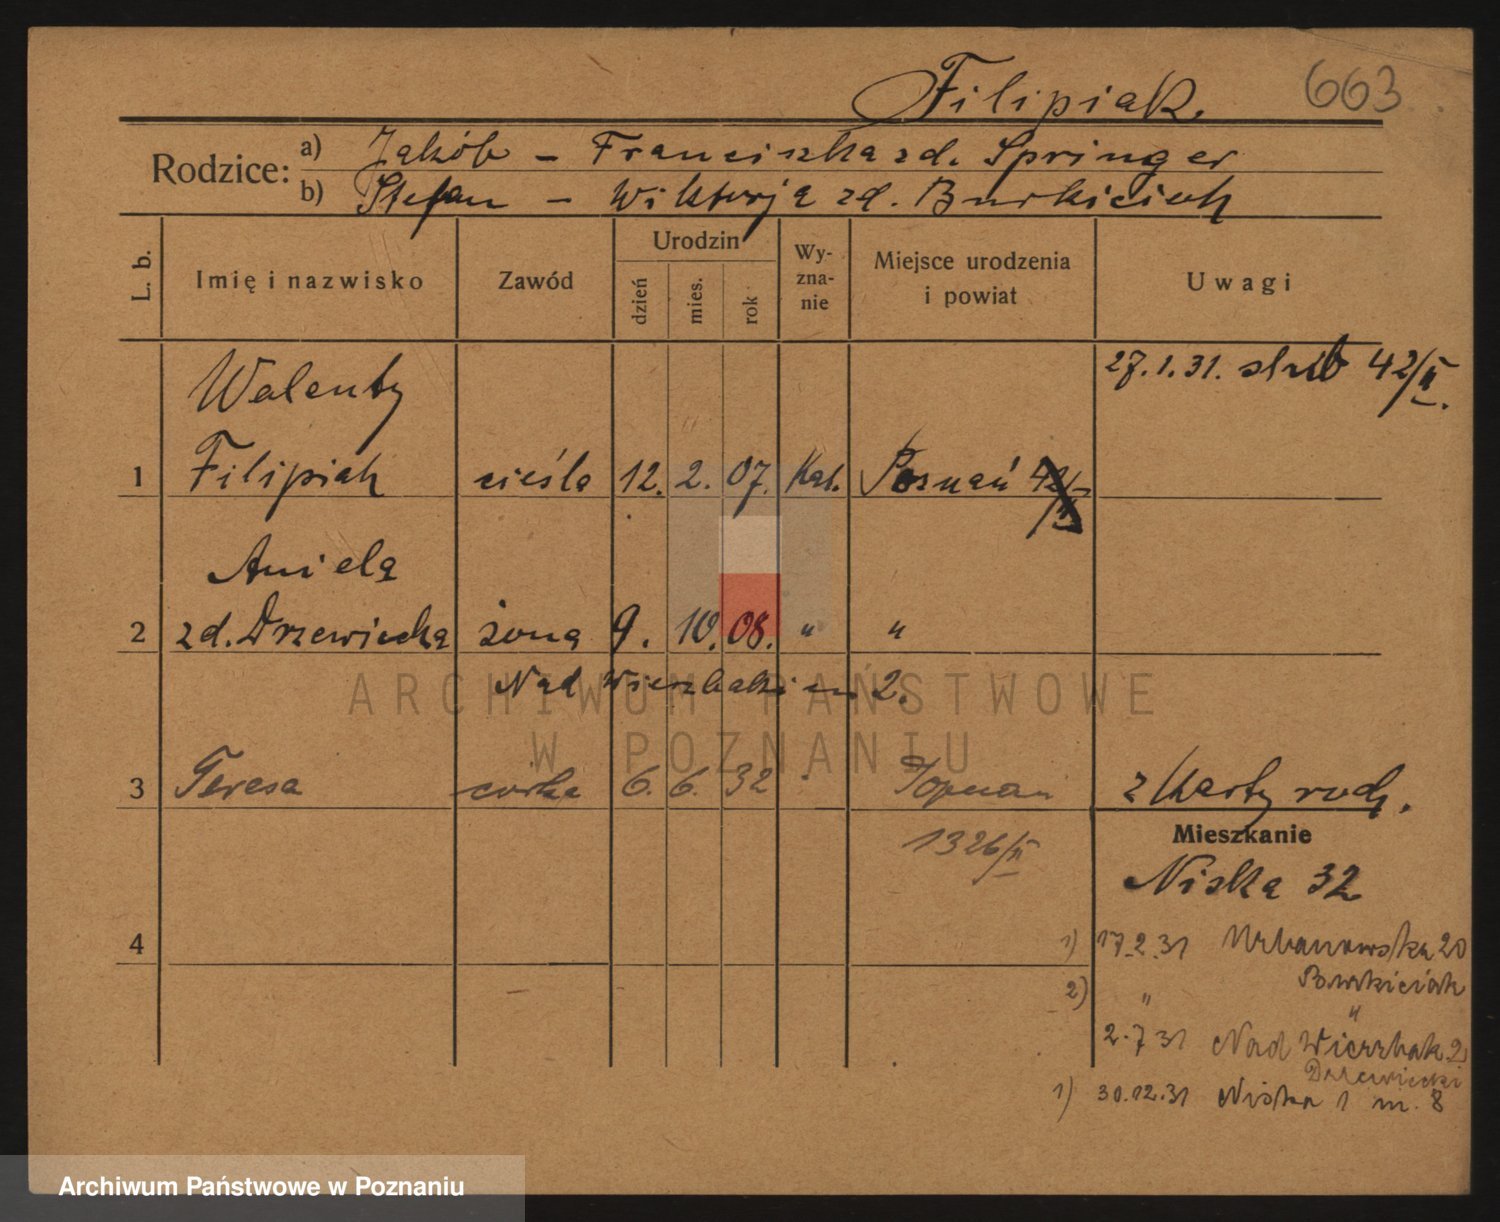 Filipiak. 663
Rodzice: a) Jakób – Franciszka zd. Springer
b) Stefan – Wiktorja zd. Burkiciak
L. b. Imię i nazwisko Zawód Urodzin dzień mies. rok Wy-zna-nie Miejsce urodzenia i powiat Uwagi
27.1.31. slub 42/II.
Walenty
1 Filipiak cieśla 12. 2. 07. Kat. Poznań 42/II
Aniela
2 zd. Drzewiecka żona 9. 10. 08. " "
Nad Wierzbakiem 2.
ARCHIWUM PAŃSTWOWE
W POZNANIU
3 Teresa córka 6. 6. 32 Poznań z Karty rodz.
1326/II
Mieszkanie
Niska 32
4
1) 17.2.31 Urbanowska 20
Burkiciak
2) " "
2.7.31 Nad Wierzbak. 2
Drzewiecki
1) 30.12.31 Niska 1 m. 8
Archiwum Państwowe w Poznaniu